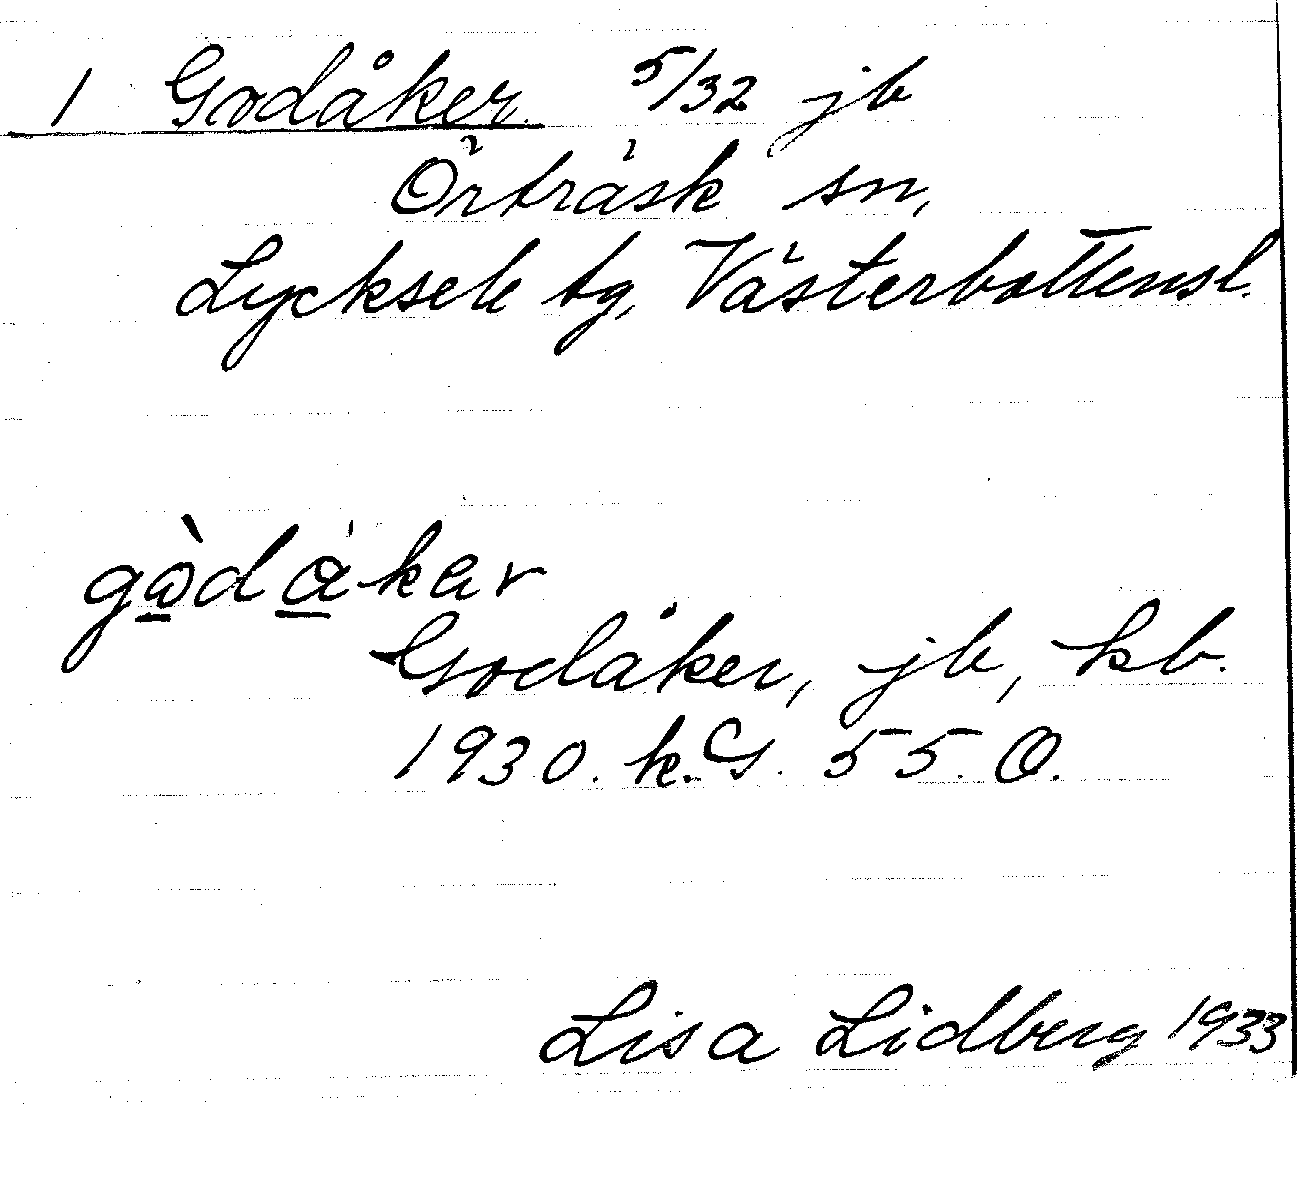 1 Godåker. 5/32 jb
Örträsk sn,
Lycksele tg, Västerbottensl.
gòdáker
Godåker, jb, kb.
1930. k.G. 55. O.
Lisa Lidberg 1933